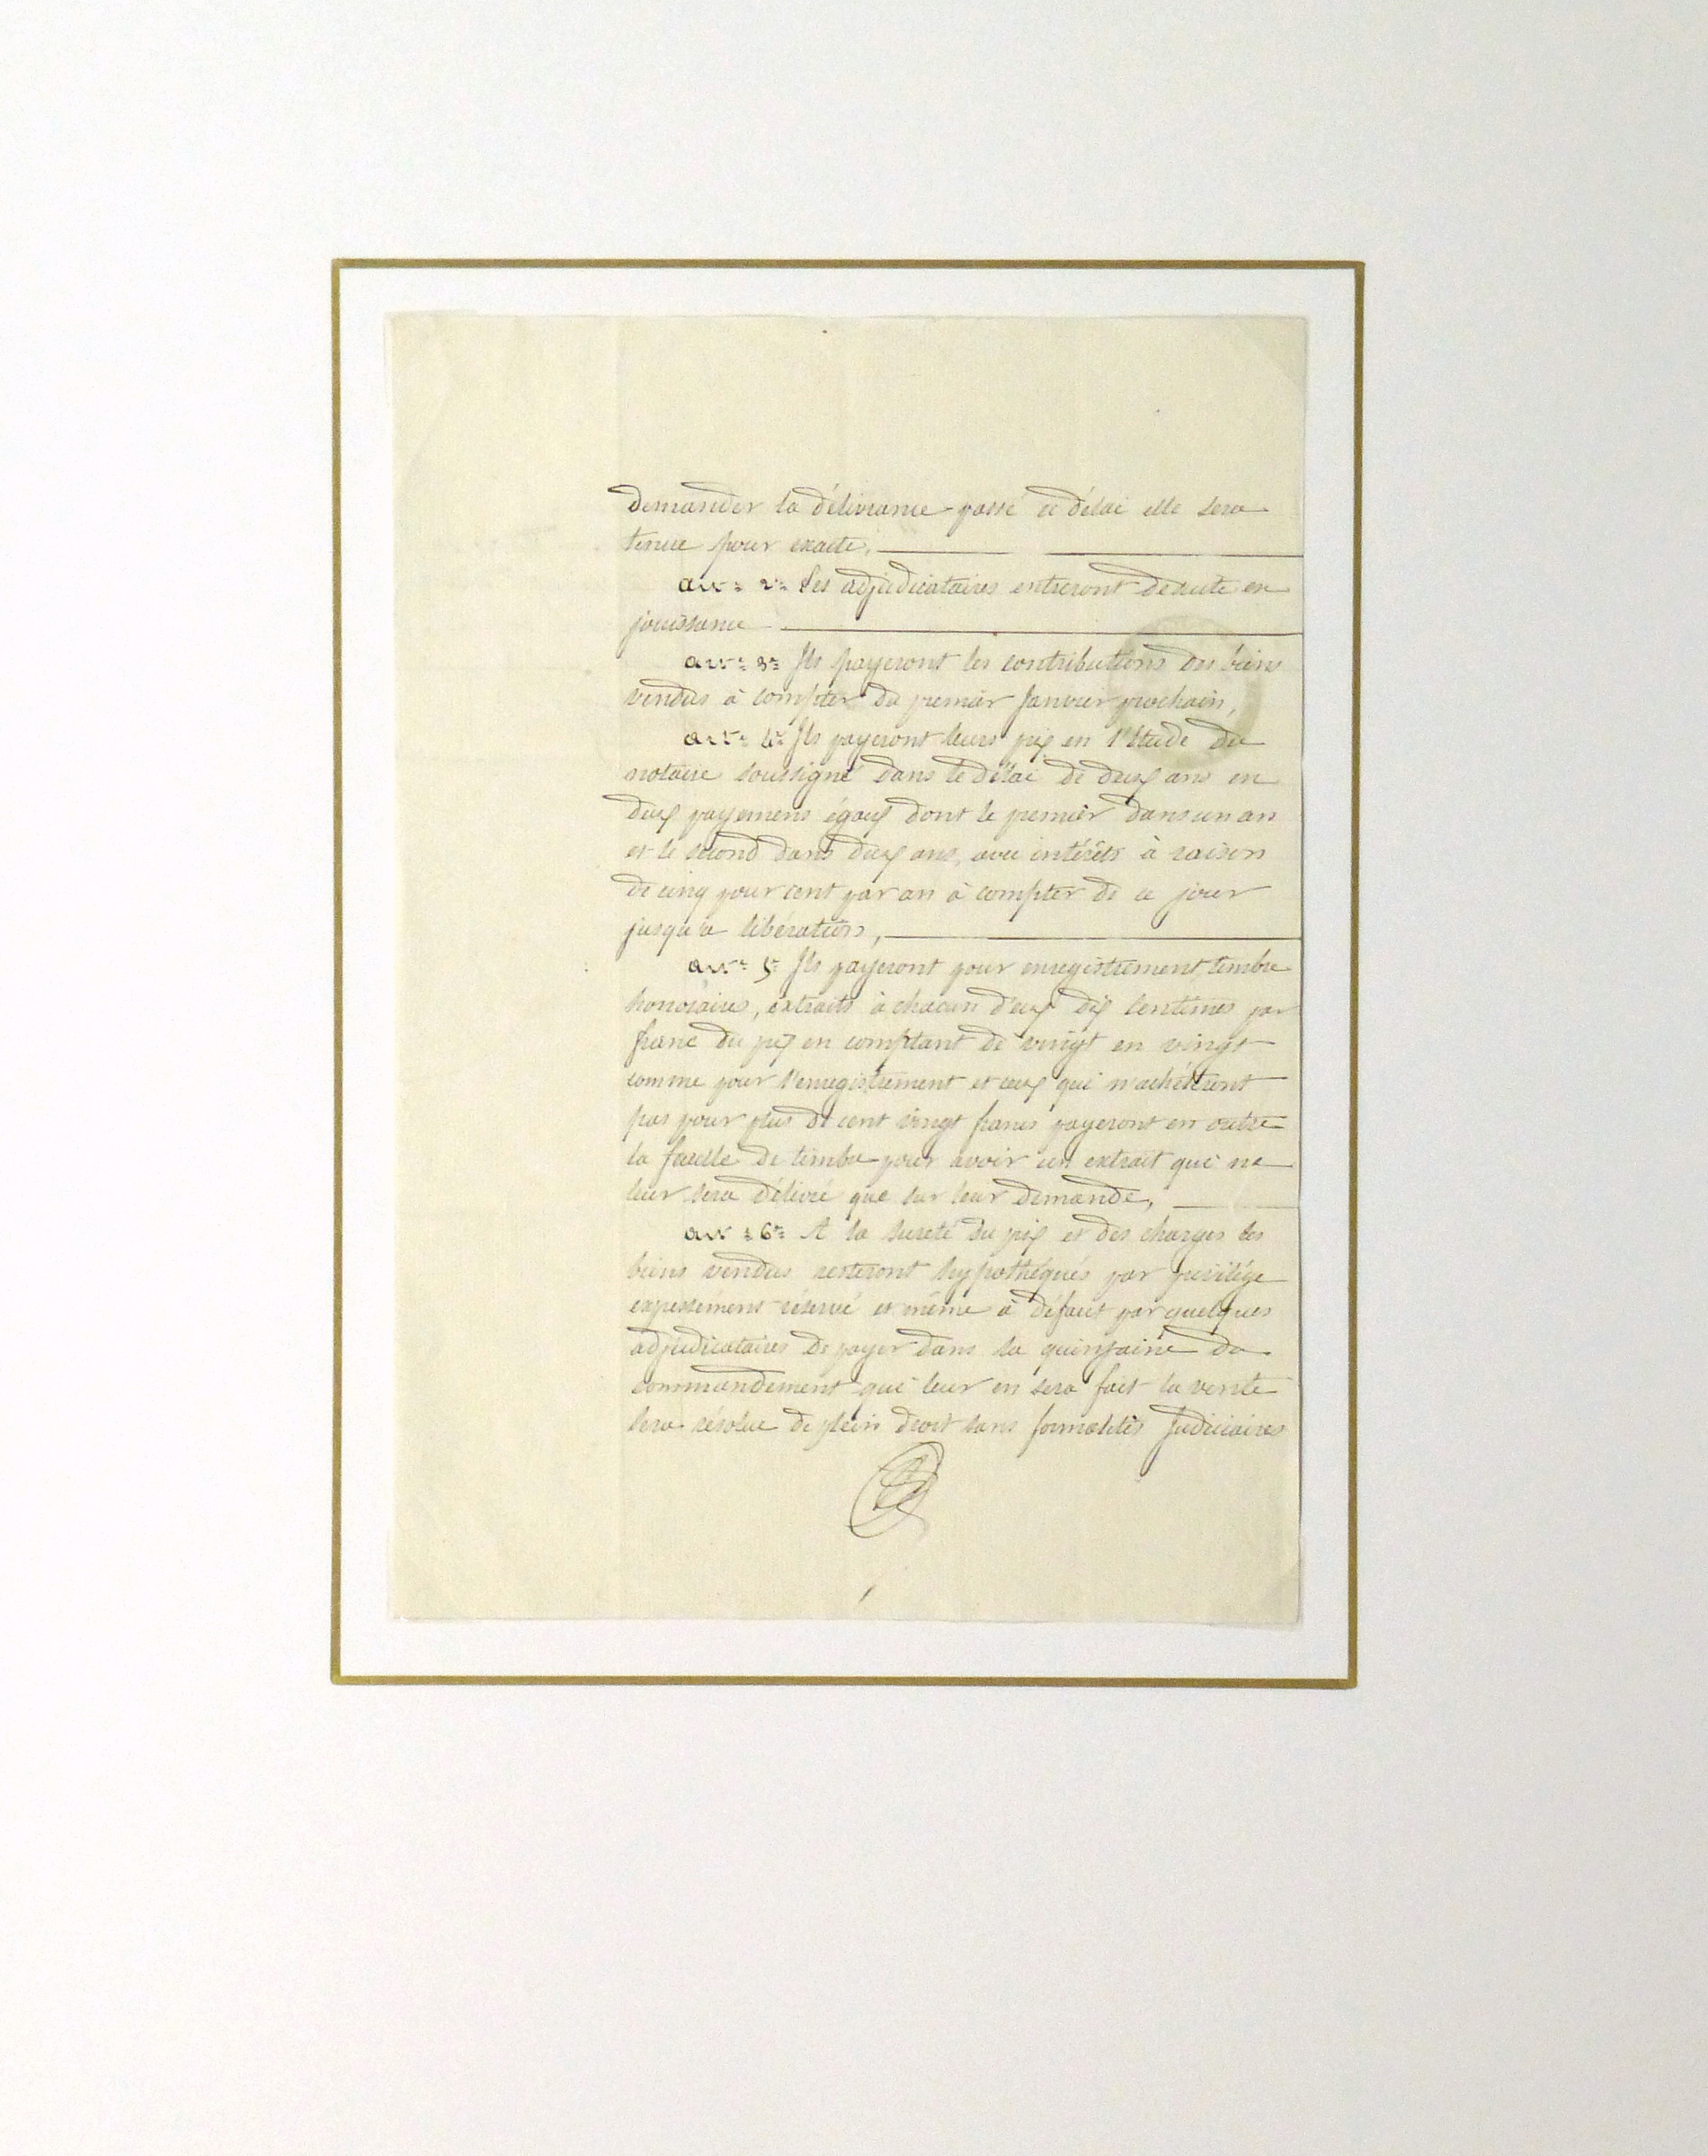 Demander la délivrance passé ce délai elle sera
tenue pour exacte,
art: 2: Les adjudicataires entreront desuite en
jouissance
art: 3: Ils payeront les contributions des biens
vendus à compter du premier Janvier prochain,
art: 4: Ils payeront leurs prix en l'Etude du
notaire soussigné dans le délai de deux ans en
deux payemens égaux dont le premier dans un an
et le second dans deux ans, avec intérêts à raison
de cinq pour cent par an à compter de ce jour
jusqu'a libération,
art: 5: Ils payeront pour enregistrement, timbre
honoraires, extraits à chacun d'eux dix centimes par
franc du prix en comptant de vingt en vingt
comme pour l'enregistrement et ceux qui n'achéteront
pas pour plus de cent vingt francs payeront en outre
la feuille de timbre pour avoir un extrait qui ne
leur sera délivré que sur leur demande,
art: 6: A la sureté du prix et des charges les
biens vendus resteront hypothéqués par privilége
expressémens réservé et même à défaut par quelques
adjudicataires de payer dans la quinzaine du
commandement qui leur en sera fait la vente
sera résolue de plein droit sans formalités Judiciaires